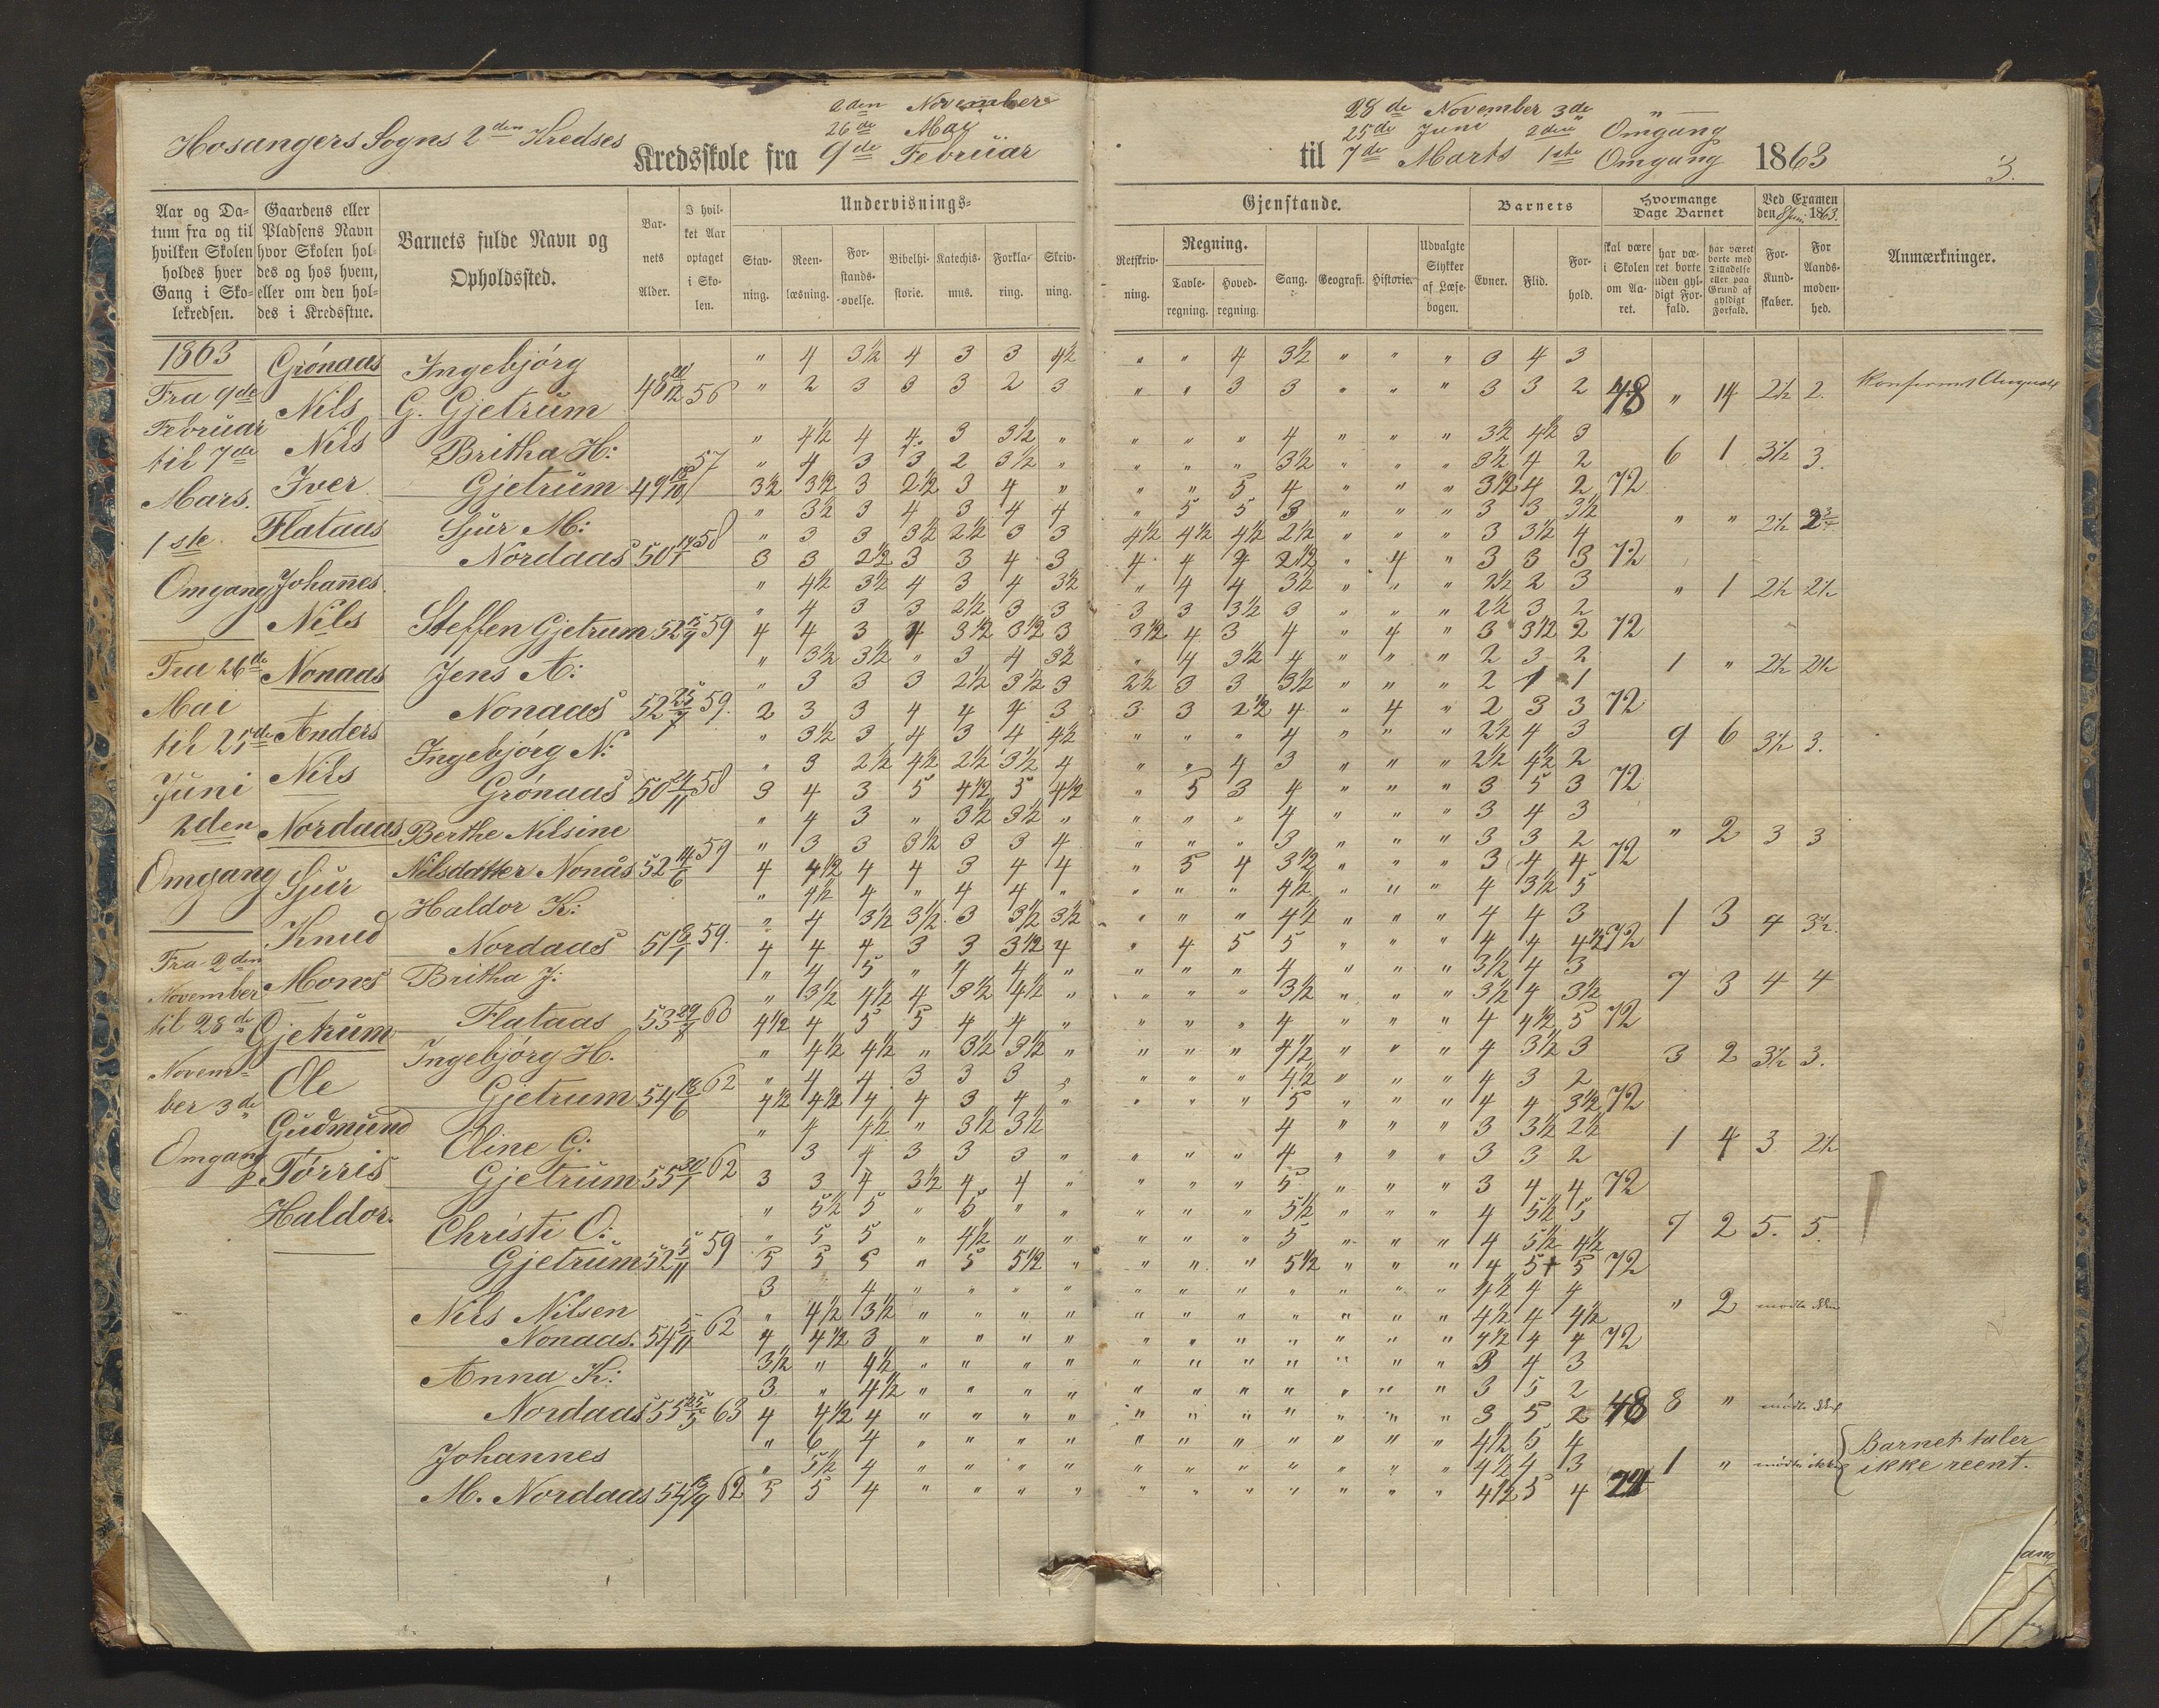 2den November
26de Mai
Hosangers Sogns 2den Kredses Kredsskole fra 9de Februar
28de November 3de "
25de Juni 2den Omgang
til 7de Marts 1ste Omgang 1863
3.
Aar og Datum fra og til hvilken Skolen holdes hver Gang i Skolekredsen.
Gaardens eller Pladsens Navn hvor Skolen holdes og hos hvem, eller om den holdes i Kredsstue.
Barnets fulde Navn og Opholdssted.
Barnets Alder.
I hvilket Aar optaget i Skolen.
Undervisnings-
Stavning.
Reenlæsning.
Forstandsøvelse.
Bibelhistorie.
Katechismus.
Forklaring.
Skrivning.
Gjenstande.
Retskrivning.
Regning.
Tavleregning.
Hovedregning.
Sang.
Geografi.
Historie.
Udvalgte Stykker af Læsebogen.
Barnets
Evner.
Flid.
Forhold.
Hvormange Dage Barnet
skal være i Skolen om Aaret.
har været borte uden gyldigt Forfald.
har været borte med Tilladelse eller paa Grund af gyldigt Forfald.
Ved Examen den 8 Juni 1863.
For Kundskaber.
For Aandsmodenhed.
Anmærkninger.
1863
Fra 9de
Februar
til 7de
Mars.
1ste
Omgang
Fra 26de
Mai
til 25de
Juni
2den
Omgang
Fra 2den
November
til 28de
Novem-
ber 3de
Omgang
Grónaas
Nils
Nils
Iver
Flataas
Johannes.
Nils
Nonaas
Anders
Nils
Nordaas
Sjur
Knud
Mons
Gjetrum
Ole
Gudmund
Tórris
Haldor.
Ingebjórg
G. Gjetrum 48 20/12 56
" 4 3½ 4 3 3 4½ " " 4 3½ " " " 3 4 3
" 2 3 3 3 2 3 " " 3 3 " " " 3 3 2 48 " 14 2½ 2.
Britha H:
Gjetrum 49 18/10 57
" 4½ 4 4 3 3½ " " " " 4 " " " 3½ 4½ 3
" 4 3 3 2 3½ " " " " 3½ " " " 3½ 4 2 6 1 3½ 3.
3½ 3½ 3 2½ 3 4 " " " 5 4 " " " 3½ 4 2 72
Sjur M:
Nordaas 50 14/1 58
" 3½ 3 4 3 4 4 " 5 5 3 " " " 3 3 3½
" 3 3 3½ 2½ 3 3 4½ 4½ 4½ 2½ " " " 3 3½ 4
3 3 2½ 3 3 4 3 4 4 4 2½ " 4 " 3 3 3 72
Steffen Gjetrum 52 15/9 59
" 4½ 3½ 4 3 4 3½ " 4 4 3½ " " " 2½ 2 3 " 1 2½ 2½
" 4 3 3 2½ 3 3 3 3 3½ 3 " " " 2½ 3 2
4 4 3 4 3½ 3½ 3 3½ 4 3 4 " 4 " 3 3½ 2 72
Jens A:
Nonaas 52 25/7 59.
" 3½ 3½ " 3 4 3½ " 4 3½ 4 " " " 2 3 2 1 " 2½ 2½
" 3 3 3 2½ 3½ 3 2½ 3 3 3½ " " " 2 1 1
2 3 3 4 4 4 3 3 3 2½ 4 " 4 " 2 3 3 72
Ingebjórg N:
Grónaas 50 24/11 58
" 3½ 3 4 3 4 4½ " " " 4 " " " 2½ 4 3 9 6 3½ 3.
" 3 2½ 4½ 2½ 3½ 4 " " 4 3 " " " 2½ 4½ 2
3 4 3 5 4½ 5 4½ " 5 3 4 " " " 3 5 3 72
Berthe Nilsine
Nilsdatter Nonås 52 14/6 59
" 4 3 " 3½ 3½ " " " " 4 " " " 3 4 3
" 3 3 3½ 3 3 4 " " " 3 " " " 3 3 2 " 2 3 3
4 4½ 4 4 3 4 4 " 5 4 3½ " " " 3 4 4 72
Haldor K:
Nordaas 51 8/1 59.
" 4½ 4 " 4 4 " " " " 4½ " " " 4 3½ 5
" 4 3½ 3½ 3 3½ 3½ " " " 4½ " " " 4 4 3 1 3 4 3½
4 4 4 3 3 3½ 4 " 4 5 5 " " " 4 4 4½ 72
Britha J:
Flataas 53 29/7 60
" 4 5 " 4 4 " " " " 4 " " " 3½ 4 3
" 3½ 4½ 4 3½ 4½ " " " " 3½ " " " 3½ 4 3½ 7 3 4 4
4½ 4 5 5 4 4 " " " " 4 " " " 4 4½ 5 72
Ingebjórg H.
Gjetrum 54 18/6 62
" 4½ 4½ " 3½ 3½ " " " " 4½ " " " 4 3½ 3 3 2 3½ 3.
" 4 4 3 3 3 " " " " 4½ " " " 4 3 2
4½ 4½ 4 4 3 4 " " " " 5 " " " 4 4 3½ 72
Oline G:
Gjetrum 55 30/1 62
" 4 4½ " 3½ 3½ 4 " " " 3 3½ 2½ 1 4 3 2½
3 4 3 3 3 " " " " 4 " " " 3 3 2
3 3 4 3½ 4 4 " " " " 5 " " " 3 4 4 72
Christi O:
Gjetrum 52 5/11 59
" 5½ 5 " 5 " " " " " 5½ " " " 4 5½ 5 7 2 5. 5.
" 5 5 " 4½ " " " " " 5 " " " 4 5½ 4½
5 5 5 " 5 5½ " " " " 5½ " " " 4 5+ 5 72
Nils Nilsen
Nonaas. 54 5/11 62
3 4 " " " " " " " " " " " 4½ 4 4
" 4½ 3½ " " " " " " " " " " " 4½ 4 4½ " 2 mødte ikke
4 4½ 3 " " " " " " " " " " " 4½ 4 4 72
Anna K:
Nordaas 55 25/5 63
3½ " 4½ " " " " " " " " " " " 3 4 3
3 " 4½ " " " " " " " " " " " 3 5 2
4 4½ 4 " " " " " " " " " " " 3 5 2 48 8 " mødte ikke
Johannes
M. Nordaas 62
" 6 4 " " " " " " " " " " " 4½ 5 4
" 5½ 4 " " " " " " " " " " " 4½ 4 3 1 " mødte ikke
5 5 4 " " " " " " " " " " " 4½ 5 4
Barnet taler
ikke reent.